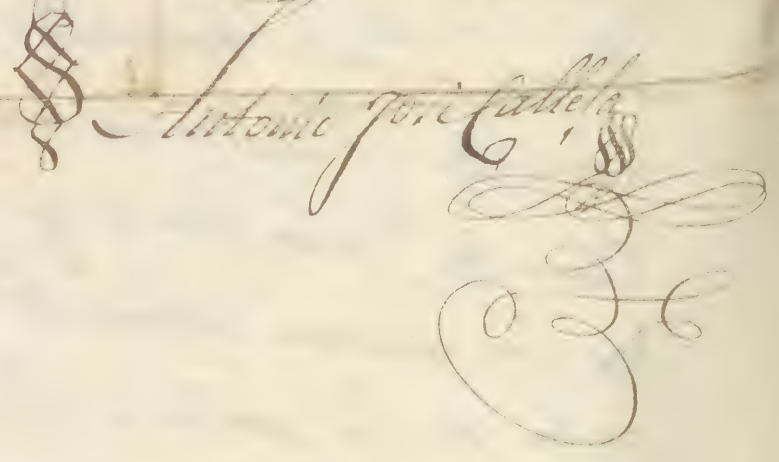 Antonio José Calleja